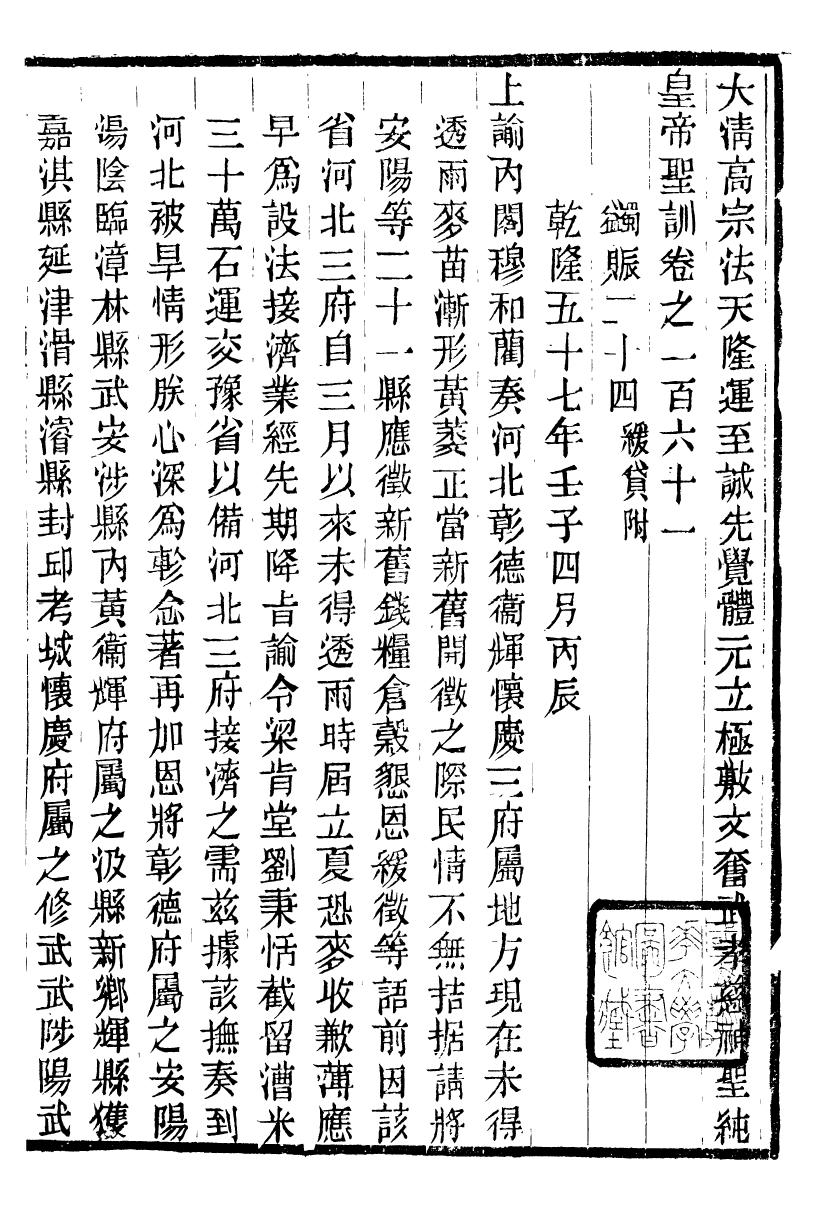 大清高宗法天隆運至誠先覺體元立極敷文奮武孝慈神聖純
皇帝聖訓卷之一百六十一
蠲賑二十四緩貸附
乾隆五十七年壬子四月丙辰
上諭內閣穆和藺奏河北彰德衞輝懷慶三府屬地方現在未得
透雨麥苗漸形黃萎正當新舊開徵之際民情不無拮据請將
安陽等二十一縣應徵新舊錢糧倉穀懇恩緩徵等語前因該
省河北三府自三月以來未得透雨時屆立夏恐麥收歉薄應
早爲設法接濟業經先期降旨諭令梁肯堂劉秉恬截留漕米
三十萬石運交豫省以備河北三府接濟之需茲據該撫奏到
河北被旱情形朕心深爲軫念著再加恩將彰德府屬之安陽
湯陰臨漳林縣武安涉縣內黃衞輝府屬之汲縣新鄉輝縣獲
嘉淇縣延津滑縣濬縣封邱考城懷慶府屬之修武武陟陽武